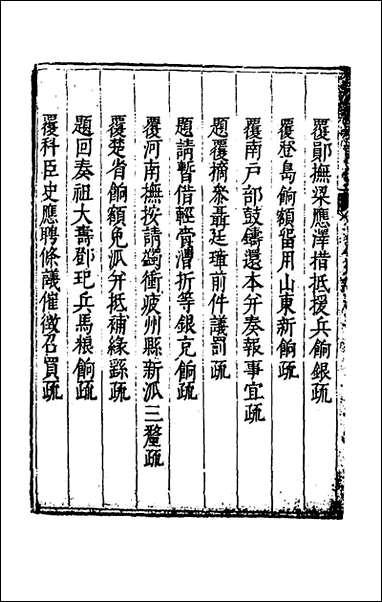 覆鄖撫梁應澤措抵援兵餉銀疏
覆登島餉額留用山東新餉疏
覆南戶部鼓鑄還本并奏報事宜疏
題覆摘參聶廷璋前件議罰疏
題請暫借輕賫漕折等銀充餉疏
覆河南撫按請蠲衝疲州縣新派三釐疏
覆楚省餉額免派并抵補緣繇疏
題回奏祖大壽鄧玘兵馬糧餉疏
覆科臣史應聘條議催徵召買疏